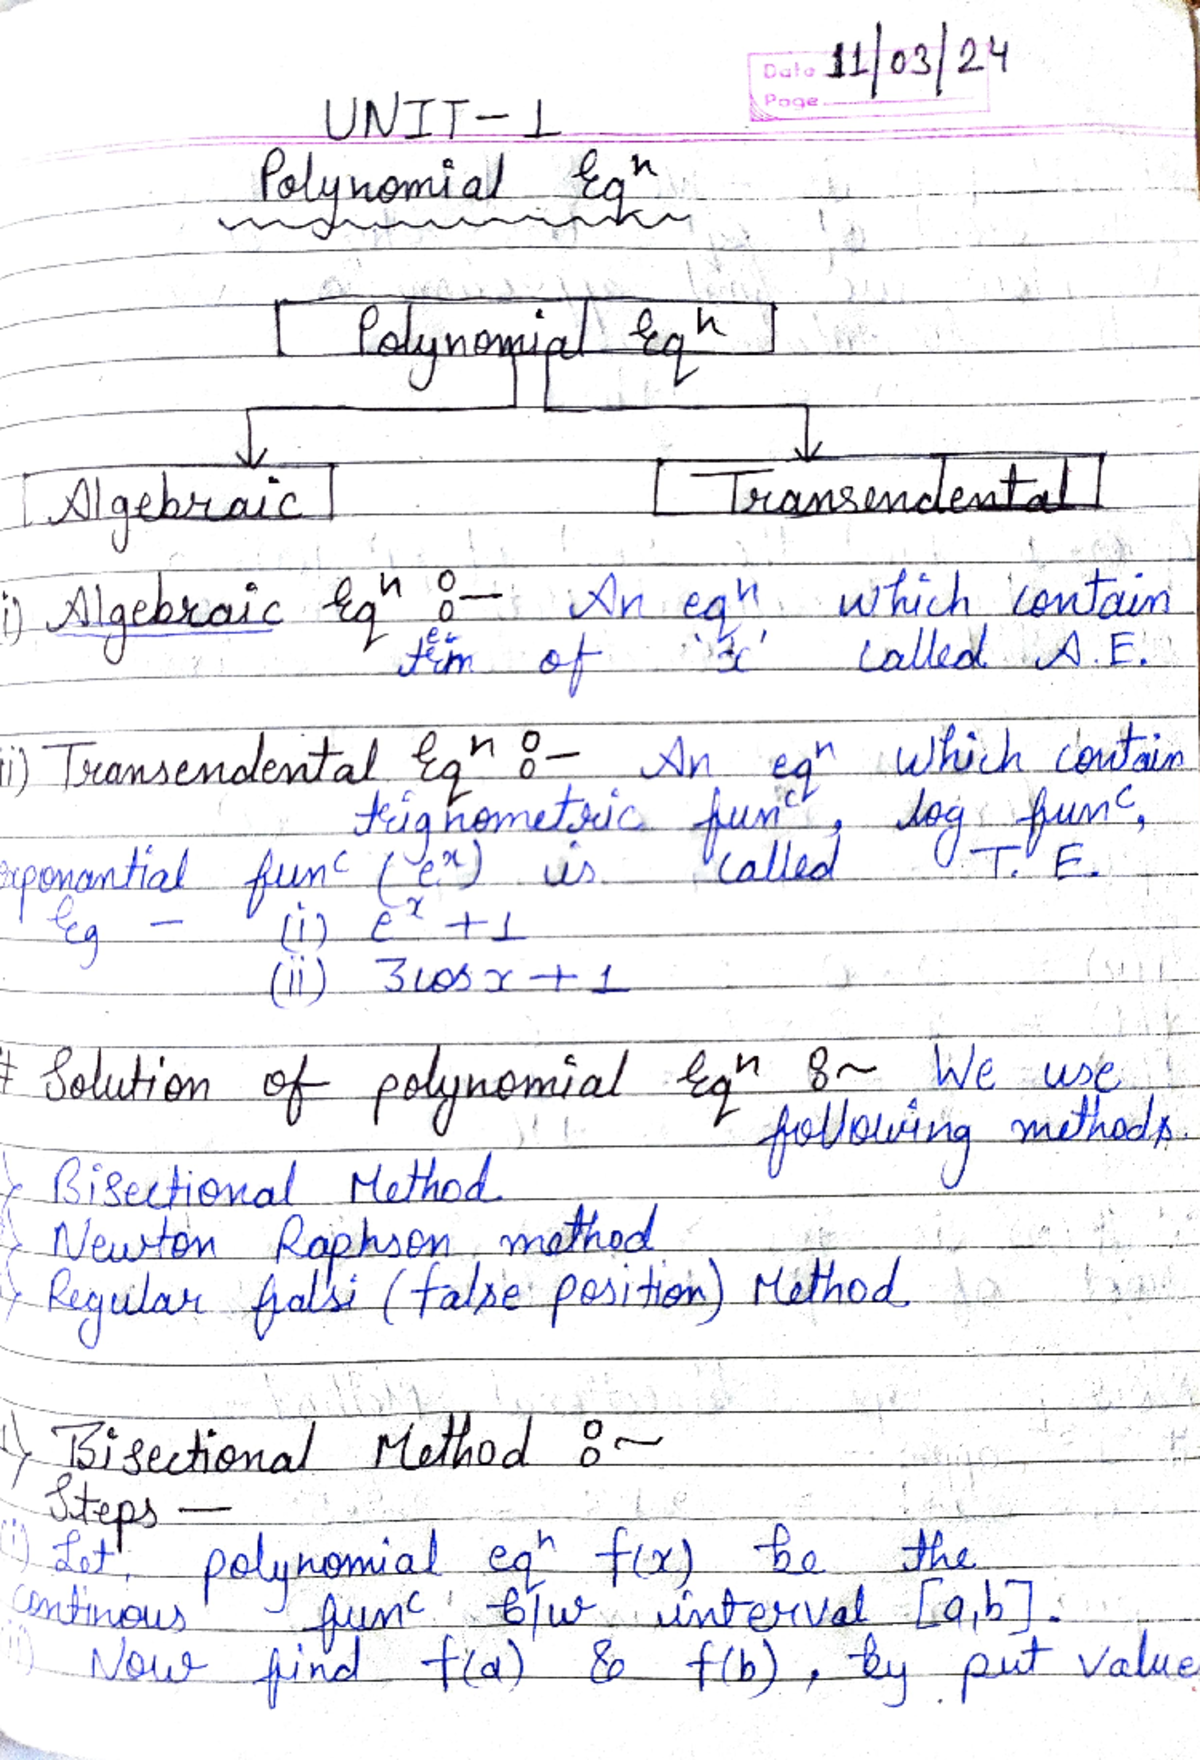 Date 11/03/24
Page
UNIT-1
Polynomial Eqⁿ
Polynomial Eqⁿ
Algebraic Transendental
i) Algebraic Eqⁿ :- An eqⁿ which contain
term of 'x' called A.E.
ii) Transendental Eqⁿ :- An eqⁿ which contain
trignometric funᶜ, log funᶜ,
exponantial funᶜ (eˣ) is called T. E.
Eg - (i) eˣ + 1
(ii) 3cosx + 1
# Solution of polynomial Eqⁿ :~ We use
following methods.
Bisectional Method
Newton Raphson method
Regular falsi (false position) Method
1) Bisectional Method :~
Steps —
(i) Let, polynomial eqⁿ f(x) be the
continous funᶜ b/w interval [a,b].
(ii) Now find f(a) & f(b), by put value